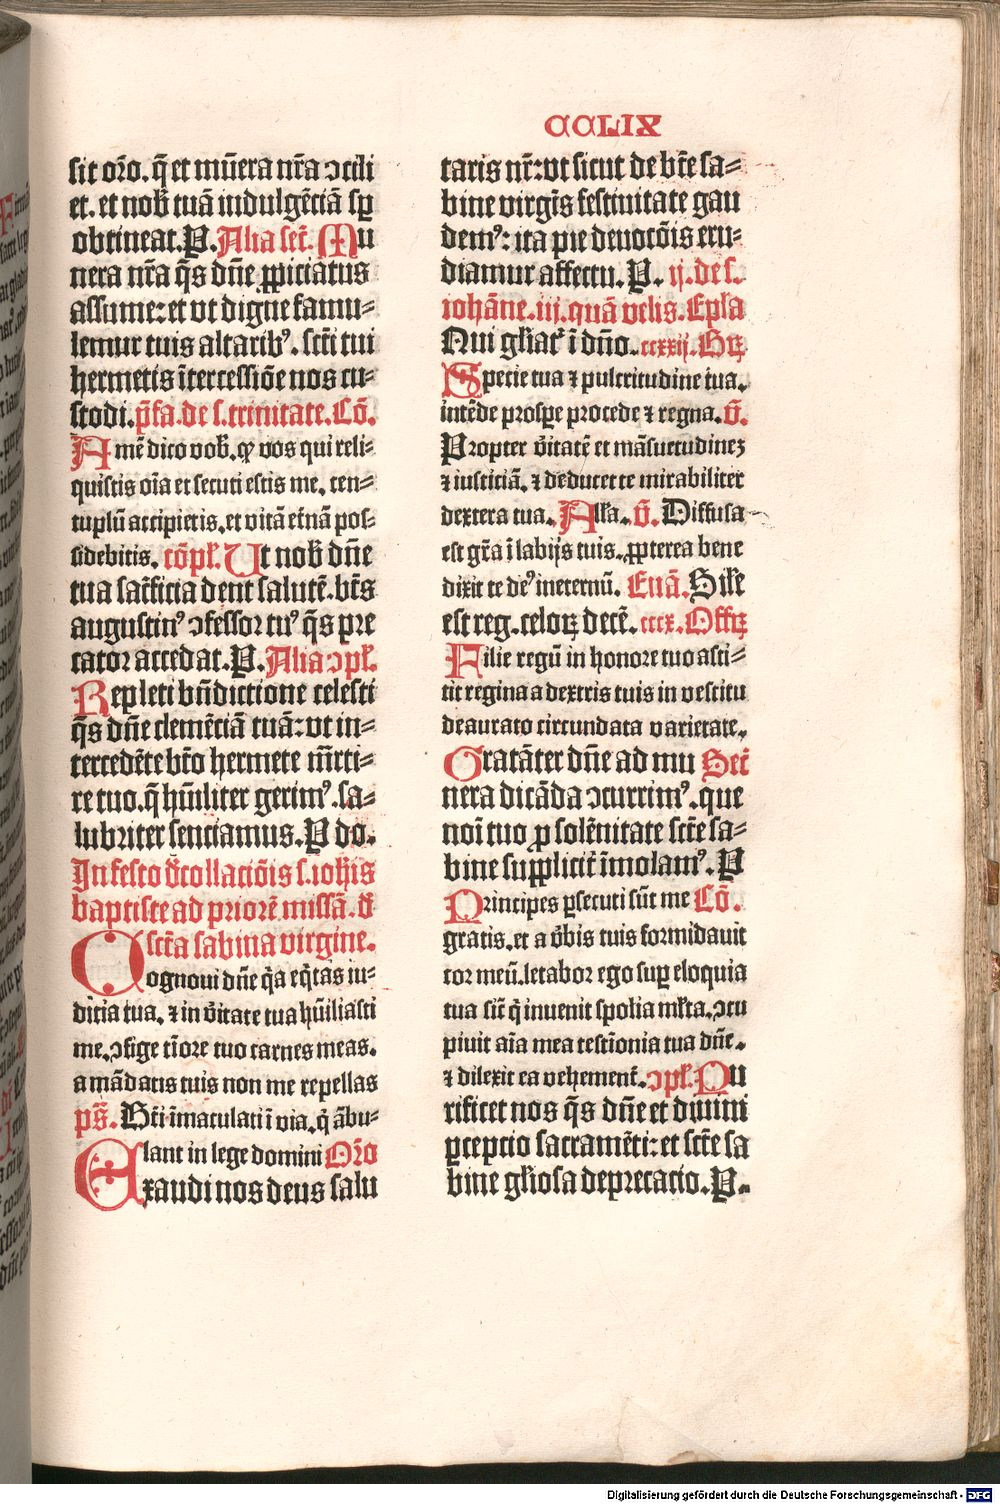 CCLIX
sit oro̅. q̅ et mu̅era nr̅a ↄcili
et. et nob̅ tua̅ indulge̅cia̅ sp̲
obtineat. P. Alia secr̅. Mu
nera nr̅a q̅s dn̅e ꝓpiciatus
assume: et vt digne famu⸗
lemur tuis altarib⁹. scti̅ tui
hermetis i̅tercessio̅e nos cu⸗
stodi. p̅fa. de s. trinitate. Co̅.
Ame̅ dico vob̅. ꝙ vos qui reli⸗
quistis oi̅a et secuti estis me. cen⸗
tuplu̅ accipietis. et vita̅ et̅na̅ pos⸗
sidebitis. co̅pl̅. Ut nob̅ dn̅e
tua sac̅ficia dent salute̅. bt̅s
augustin⁹ ↄfessor tu⁹ q̅s pre
cator accedat. P. Alia ↄpl̅.
Repleti bn̅dictione celesti
q̅s dn̅e cleme̅cia̅ tua̅: vt in⸗
tercede̅te bt̅o hermete m̅rti⸗
re tuo. q̅ hu̅iliter gerim⁹. sa⸗
lubriter senciamus. P do.
In festo d̅collacio̅is s. ioh̅is
baptiste ad priore̅ missa̅. d̅
Oscta̅ sabina virgine.
Cognoui dn̅e q̅a eq̅tas iu⸗
di̅cia tua. ⁊ in v̅itate tua hu̅iliasti
me. ↄfige ti̅ore tuo carnes meas.
a ma̅datis tuis non me repellas
ps̅. Bt̅i i̅maculati i̅ via. q̅ a̅bu⸗
lant in lege domini Oro̅
Exaudi nos deus salu
taris nr̅: vt sicut de bt̅e sa⸗
bine virgi̅s festiuitate gau
dem⁹: ita pie deuoto̅is eru⸗
diamur affectu. P. ij. de s.
ioha̅ne. iij. qua̅ velis. Epl̅a
Nui gl̅iat̅ i̅ dn̅o. ccxxij. Gꝝ
Specie tua ⁊ pulcritudine tua.
inte̅de prospe procede ⁊ regna. v̅.
Propter v̅itate̅ et ma̅suetudineꝫ
⁊ iusticia̅. ⁊ deducet te mirabiliter
dextera tua. All̅a. v̅. Diffusa
est gr̅a i̅ labijs tuis. ꝓpterea bene
dixit te de⁹ ineternu̅. Eua̅. Sil̅e
est reg. celoꝝ dece̅. cccx. Offꝝ
Filie regu̅ in honore tuo asti⸗
tit regina a dextris tuis in vestitu
deaurato circundata varietate.
Grata̅ter dn̅e ad mu Secr̅
nera dica̅da ↄcurrim⁹. que
noi̅ tuo ꝓ sole̅nitate sct̅e sa⸗
bine supplicit̅ i̅molam⁹. P
Principes ꝑsecuti su̅t me Co̅.
gratis. et a v̅bis tuis formidauit
cor meu̅. letabor ego suꝑ eloquia
tua sic̅ q̅ inuenit spolia ml̅ta. ↄcu
piuit ai̅a mea testi̅onia tua dn̅e.
⁊ dilexit ea vehement̅. ↄpl̅. Pu
rificet nos q̅s dn̅e et diuini
ꝑcepcio sacrame̅ti: et sct̅e sa
bine gl̅iosa deprecacio. P.
Digitalisierung gefördert durch die Deutsche Forschungsgemeinschaft - DFG